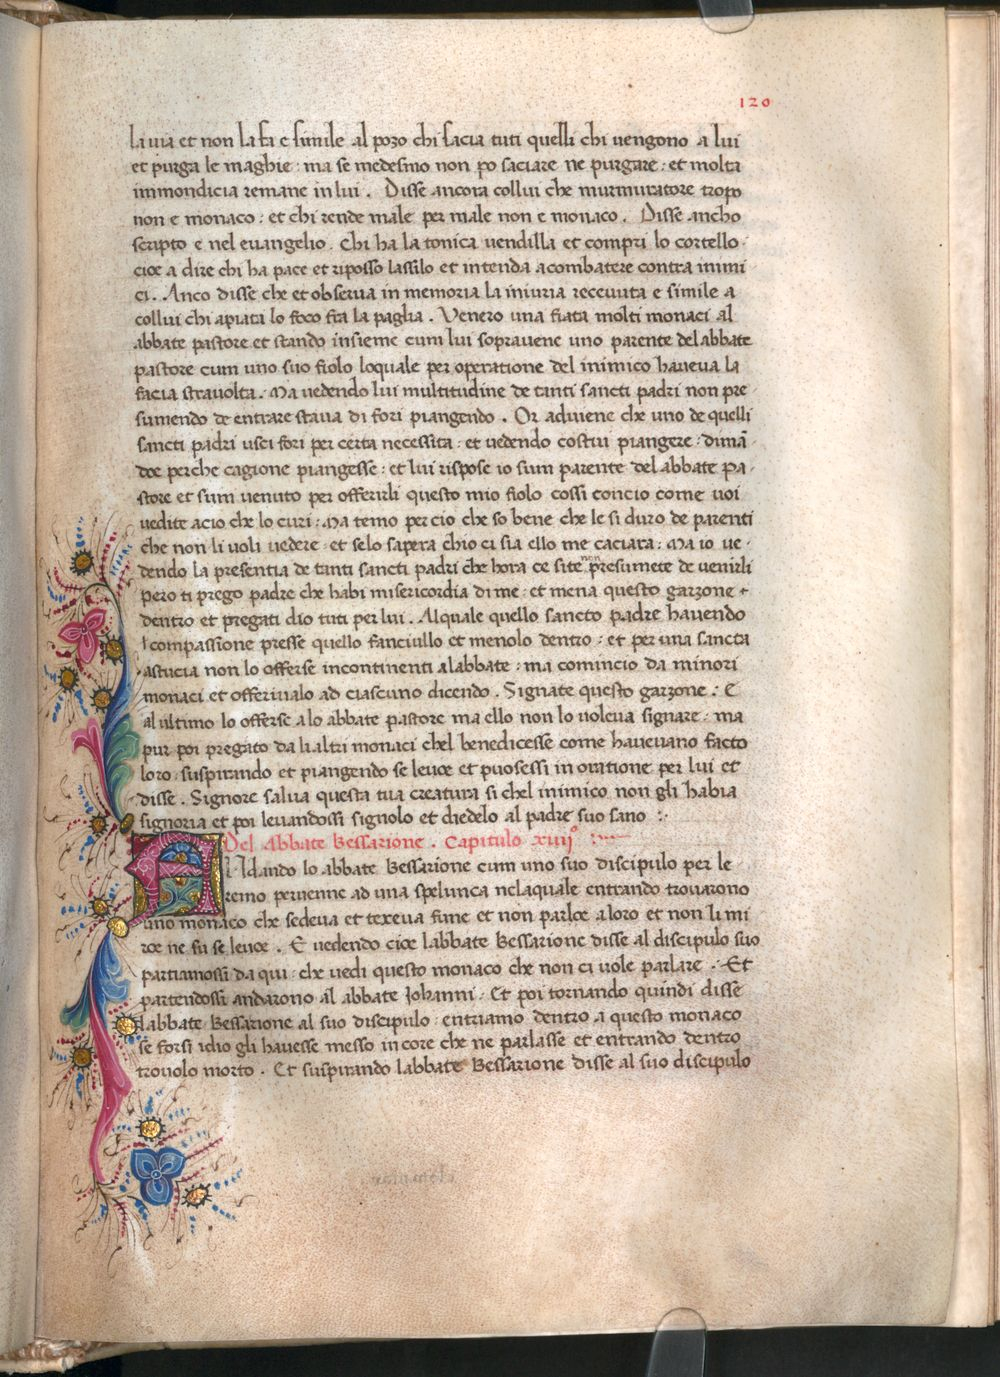 120
la uia et non la fa e simile al pozo chi sacia tuti quelli chi uengono a lui
et purga le maghie : ma se medesmo non po saciare ne purgare : et molta
immondicia remane in lui . Disse ancora collui che murmuratore tropo
non e monaco : et chi rende male per male non e monaco . Disse ancho
scripto e nel euangelio . Chi ha la tonica uendilla et compri lo cortello .
cioe a dire chi ha pace et riposso lassilo et intenda a combatere contra inimi
ci . Anco disse che et obserua in memoria la iniuria receuuta e simile a
collui chi apiata lo foco fra la paglia . Venero una fiata molti monaci al
abbate pastore et stando insieme cum lui sopravene uno parente del abbate
pastore cum uno suo fiolo loquale per operatione del inimico haueua la
facia strauolta . Ma uedendo lui multitudine de tanti sancti padri non pre
sumendo de entrare staua di fori piangendo . Or aduiene che uno de quelli
sancti padri usci fori per certa necessita : et uedendo costui piangere : dimā
doe perche cagione piangesse : et lui rispose io sum parente del abbate pa .
store et sum uenuto per offerirli questo mio fiolo cossi concio come uoi
uedite acio che lo curi : Ma temo per cio che so bene che le si duro de parenti
che non li uoli uedere : et se lo sapera chio ci sia ello me caciara : Ma io ue .
dendo la presentia de tanti sancti padri che hora ce site non presumete de uenirli
pero ti prego padre che habi misericordia di me : et mena questo garzone
dentro et pregati dio tuti per lui . Al quale quello sancto padre hauendo
compassione presse quello fanciullo et menolo dentro : et per una sancta
astucia non lo offerse incontinenti al abbate : ma comincio da minori
monaci et offeriualo ad ciascuno dicendo . Signate questo garzone : E
al ultimo lo offerse a lo abbate pastore ma ello non lo uoleua signare : ma
pur poi pregato da li altri monaci chel benedicesse come haueuano facto
loro : suspirando et piangendo se leuoe et puosessi in oratione per lui et
disse . Signore salua questa tua creatura si chel inimico non gli habia
signoria et poi leuandossi signolo et diedelo al padre suo sano :
Del Abbate Bessarione . Capitulo xiiijº
Andando lo abbate Bessarione cum uno suo discipulo per le
remo peruenne ad una spelunca nelaquale entrando trouarono
uno monaco che sedeua et texeua fune et non parloe a loro et non li mi
roe ne su se leuoe . E uedendo cioe labbate Bessarione disse al discipulo suo
partiamossi da qui : che uedi questo monaco che non ci uole parlare : Et
partendossi andarono al abbate Iohanni . Et poi tornando quindi disse
labbate Bessarione al suo discipulo : entriamo dentro a questo monaco
se forsi idio gli hauesse messo in core che ne parlasse et entrando dentro
trouolo morto . Et suspirando labbate Bessarione disse al suo discipulo